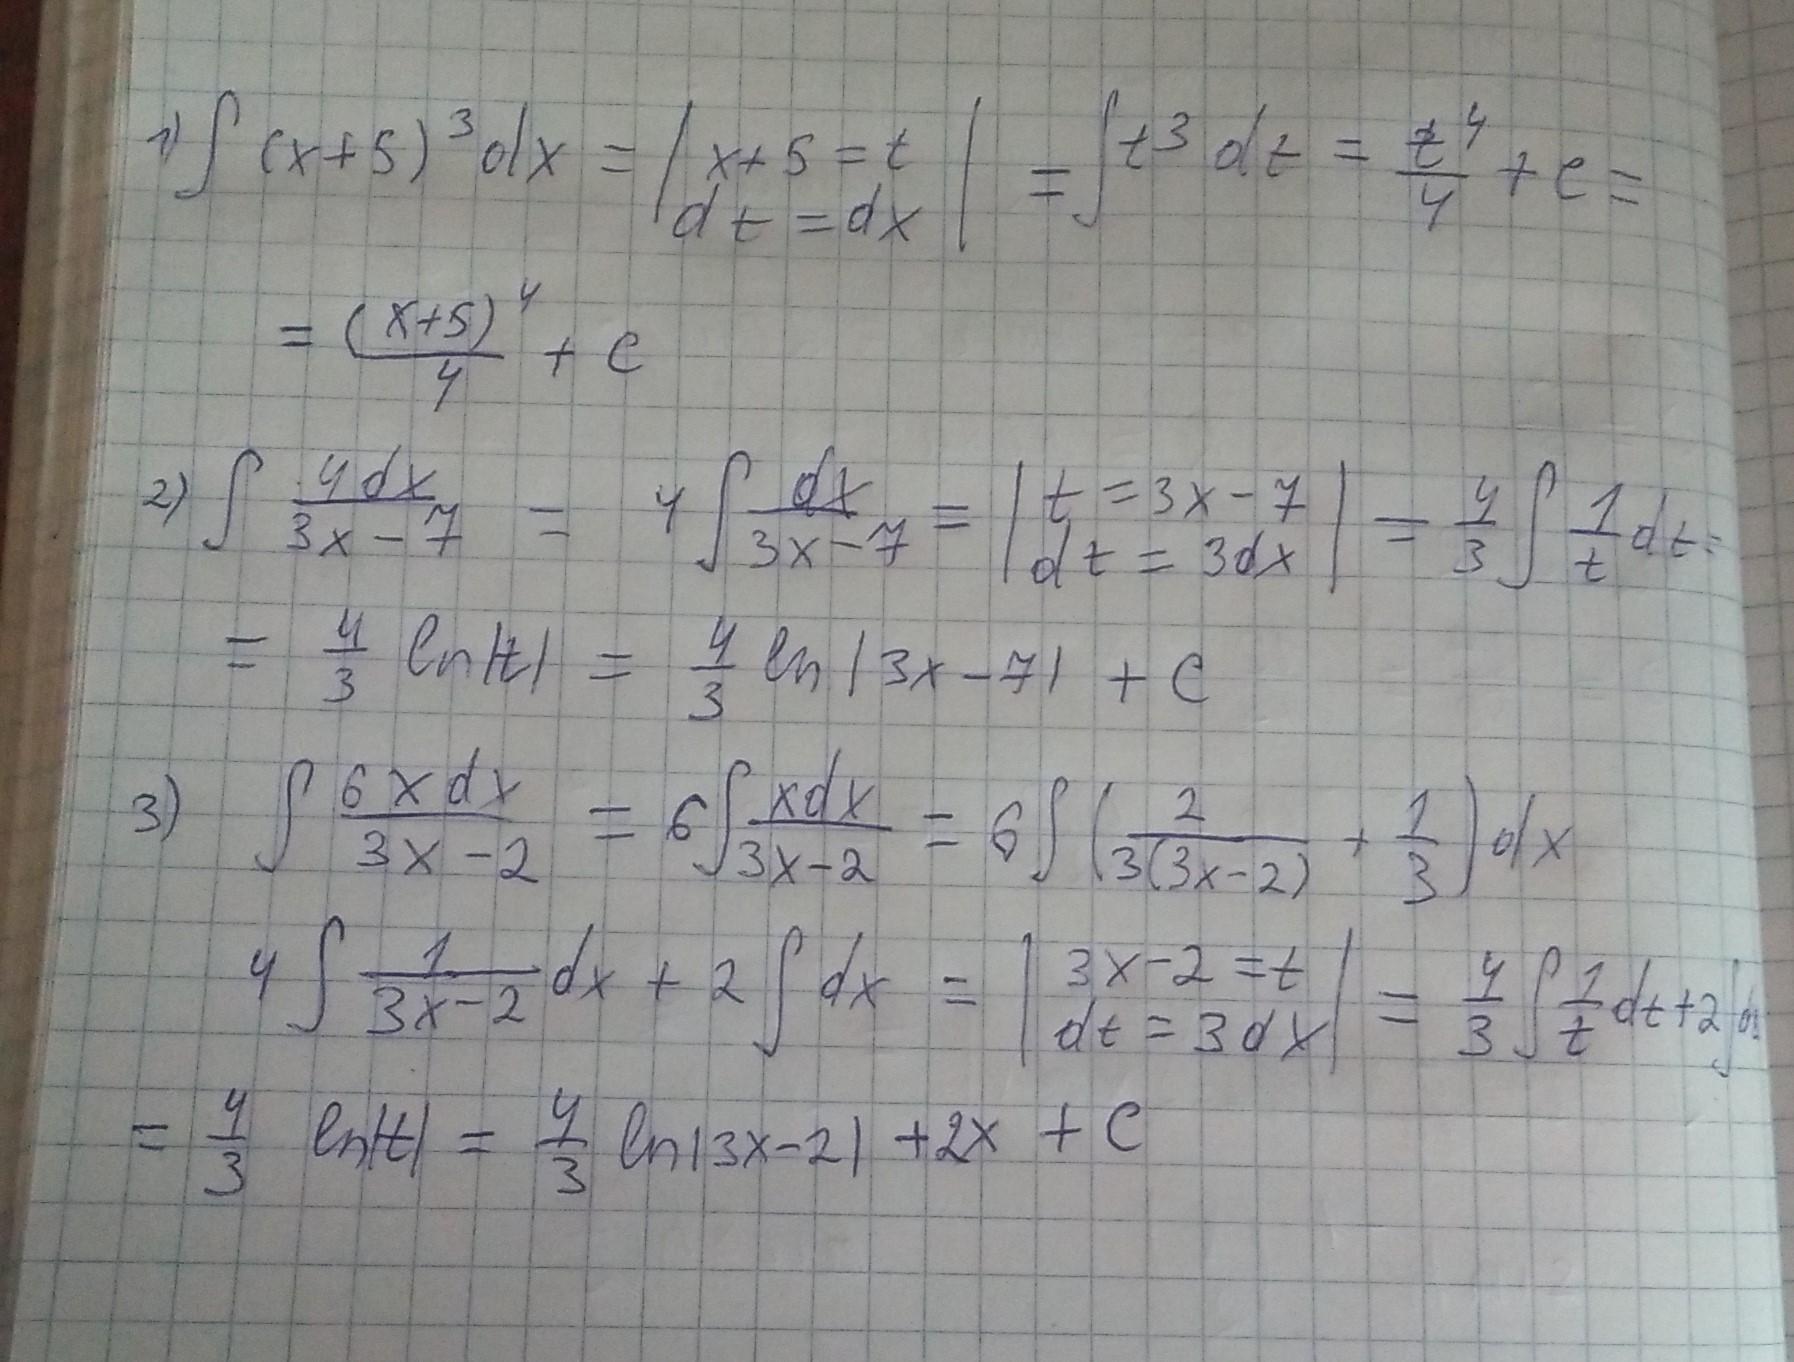 1) ∫ (x+5)³ dx = | x+5 = t, dt = dx | = ∫ t³ dt = t⁴/4 + c =
= (x+5)⁴/4 + c
2) ∫ 4dx/(3x-7) = 4 ∫ dx/(3x-7) = | t = 3x-7, dt = 3dx | = 4/3 ∫ 1/t dt =
= 4/3 ln|t| = 4/3 ln|3x-7| + c
3) ∫ 6xdx/(3x-2) = 6 ∫ xdx/(3x-2) = 6 ∫ (2/(3(3x-2)) + 1/3) dx
4 ∫ 1/(3x-2) dx + 2 ∫ dx = | 3x-2 = t, dt = 3dx | = 4/3 ∫ 1/t dt + 2 ∫
= 4/3 ln|t| = 4/3 ln|3x-2| + 2x + c